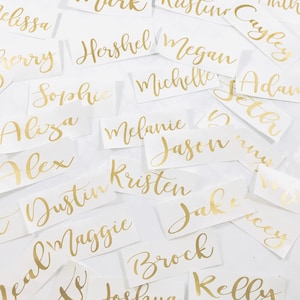 Mark
Kristine
Melissa
Cayley
Sherry
Hershel
Megan
Michelle
Sophie
Adam
Seth
Aliza
Melanie
Jason
Danny
Alex
Kristen
Dustin
Jake
Neal
Maggie
Brock
Joshua
Kelly